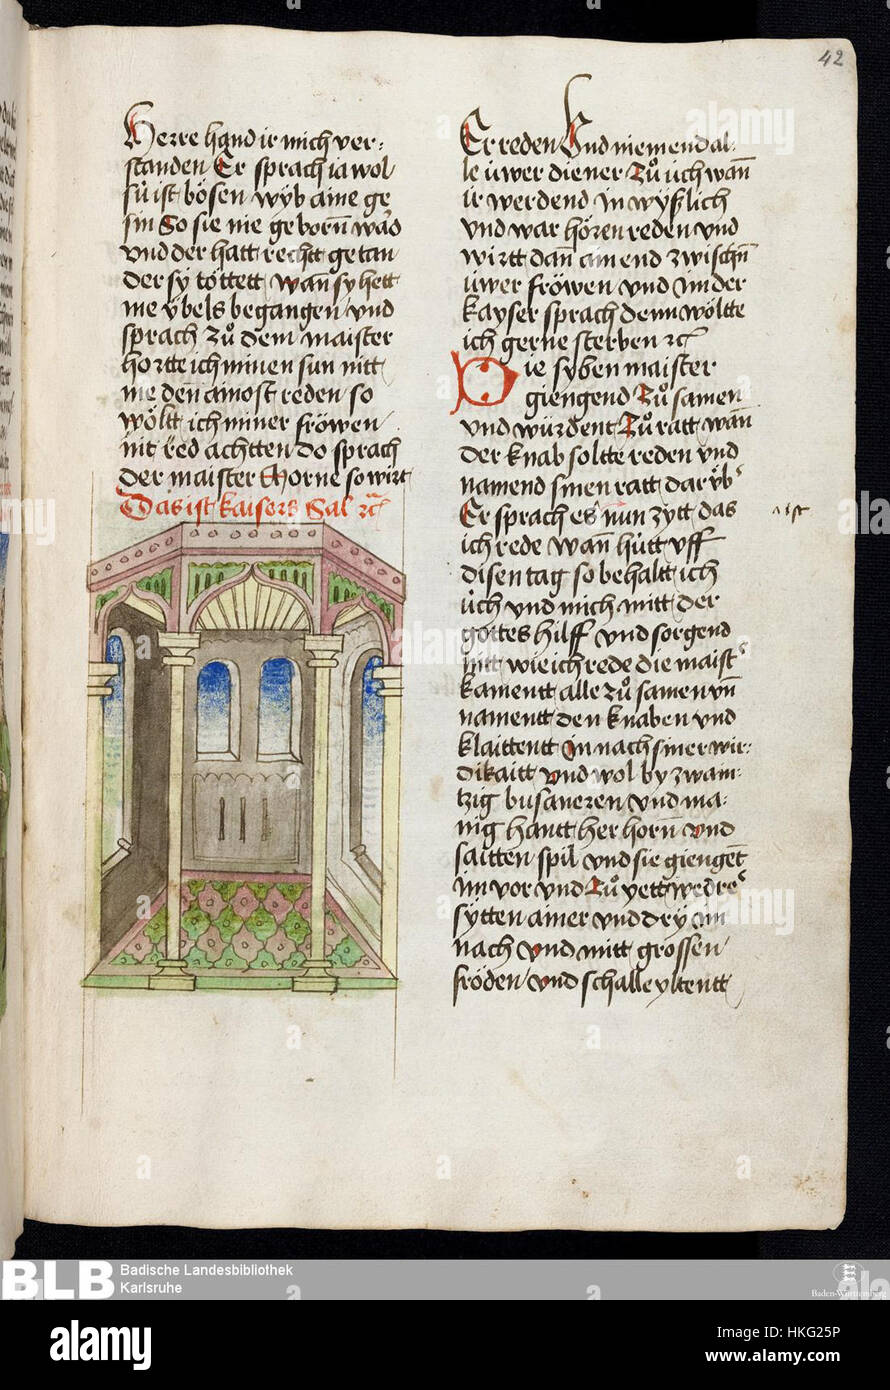 42
Herre hand ir mich ver:
standen Er sprach ia wol
sú ist bösen wÿb aine ge
sin So sie nie geborn̄ wär
vnd der hatt rechtt getan
der sy töttett wan̄ sy hett
nie v̈bels begangen vnd
sprach zů dem maister
hortte ich minen sun nitt
me den̄ ainost reden so
wöltt ich miner fröwen
nit red achtten do sprach
der maister Morne so wirt
Das ist kaisers Sal ꝛc
Er reden Vnd niemend al:
le ůwer diener Zů ůch wan̄
ir werdend in wÿßlich
vnd war hören reden vnd
wirtt dan̄ ain end zwischn̄
ůwer fröwen vnd im der
kayser sprach denn wöltte
ich gerne sterben ꝛc
Die syben maister
giengend Zů samen
vnd wůrdent Zů ratt wan̄
der knab soltte reden vnd
namend sinen ratt dar v̈b
Er sprach es nun zytt das
ist
ich rede wan̄ hůtt vff
disen tag so behaltt ich
ůch vnd mich mitt der
gottes hilff vnd sorgend
nitt wie ich rede die maist
kamentt alle zů samen vn̄
namentt den knaben vnd
klaittentt in nach siner wir:
dikaitt vnd wol by zwain:
tzig busaneren vnd ma:
nig hantt her horn̄ vnd
saitten spil vnd sie gienget̄
im vor vnd Zů yettwedre
sytten ainer vnd dry im
nach vnd mitt grossen
fröden vnd schalle yltentt
BLB Badische Landesbibliothek
Karlsruhe
Baden-Württemberg
alamy
Image ID: HKG25P
www.alamy.com